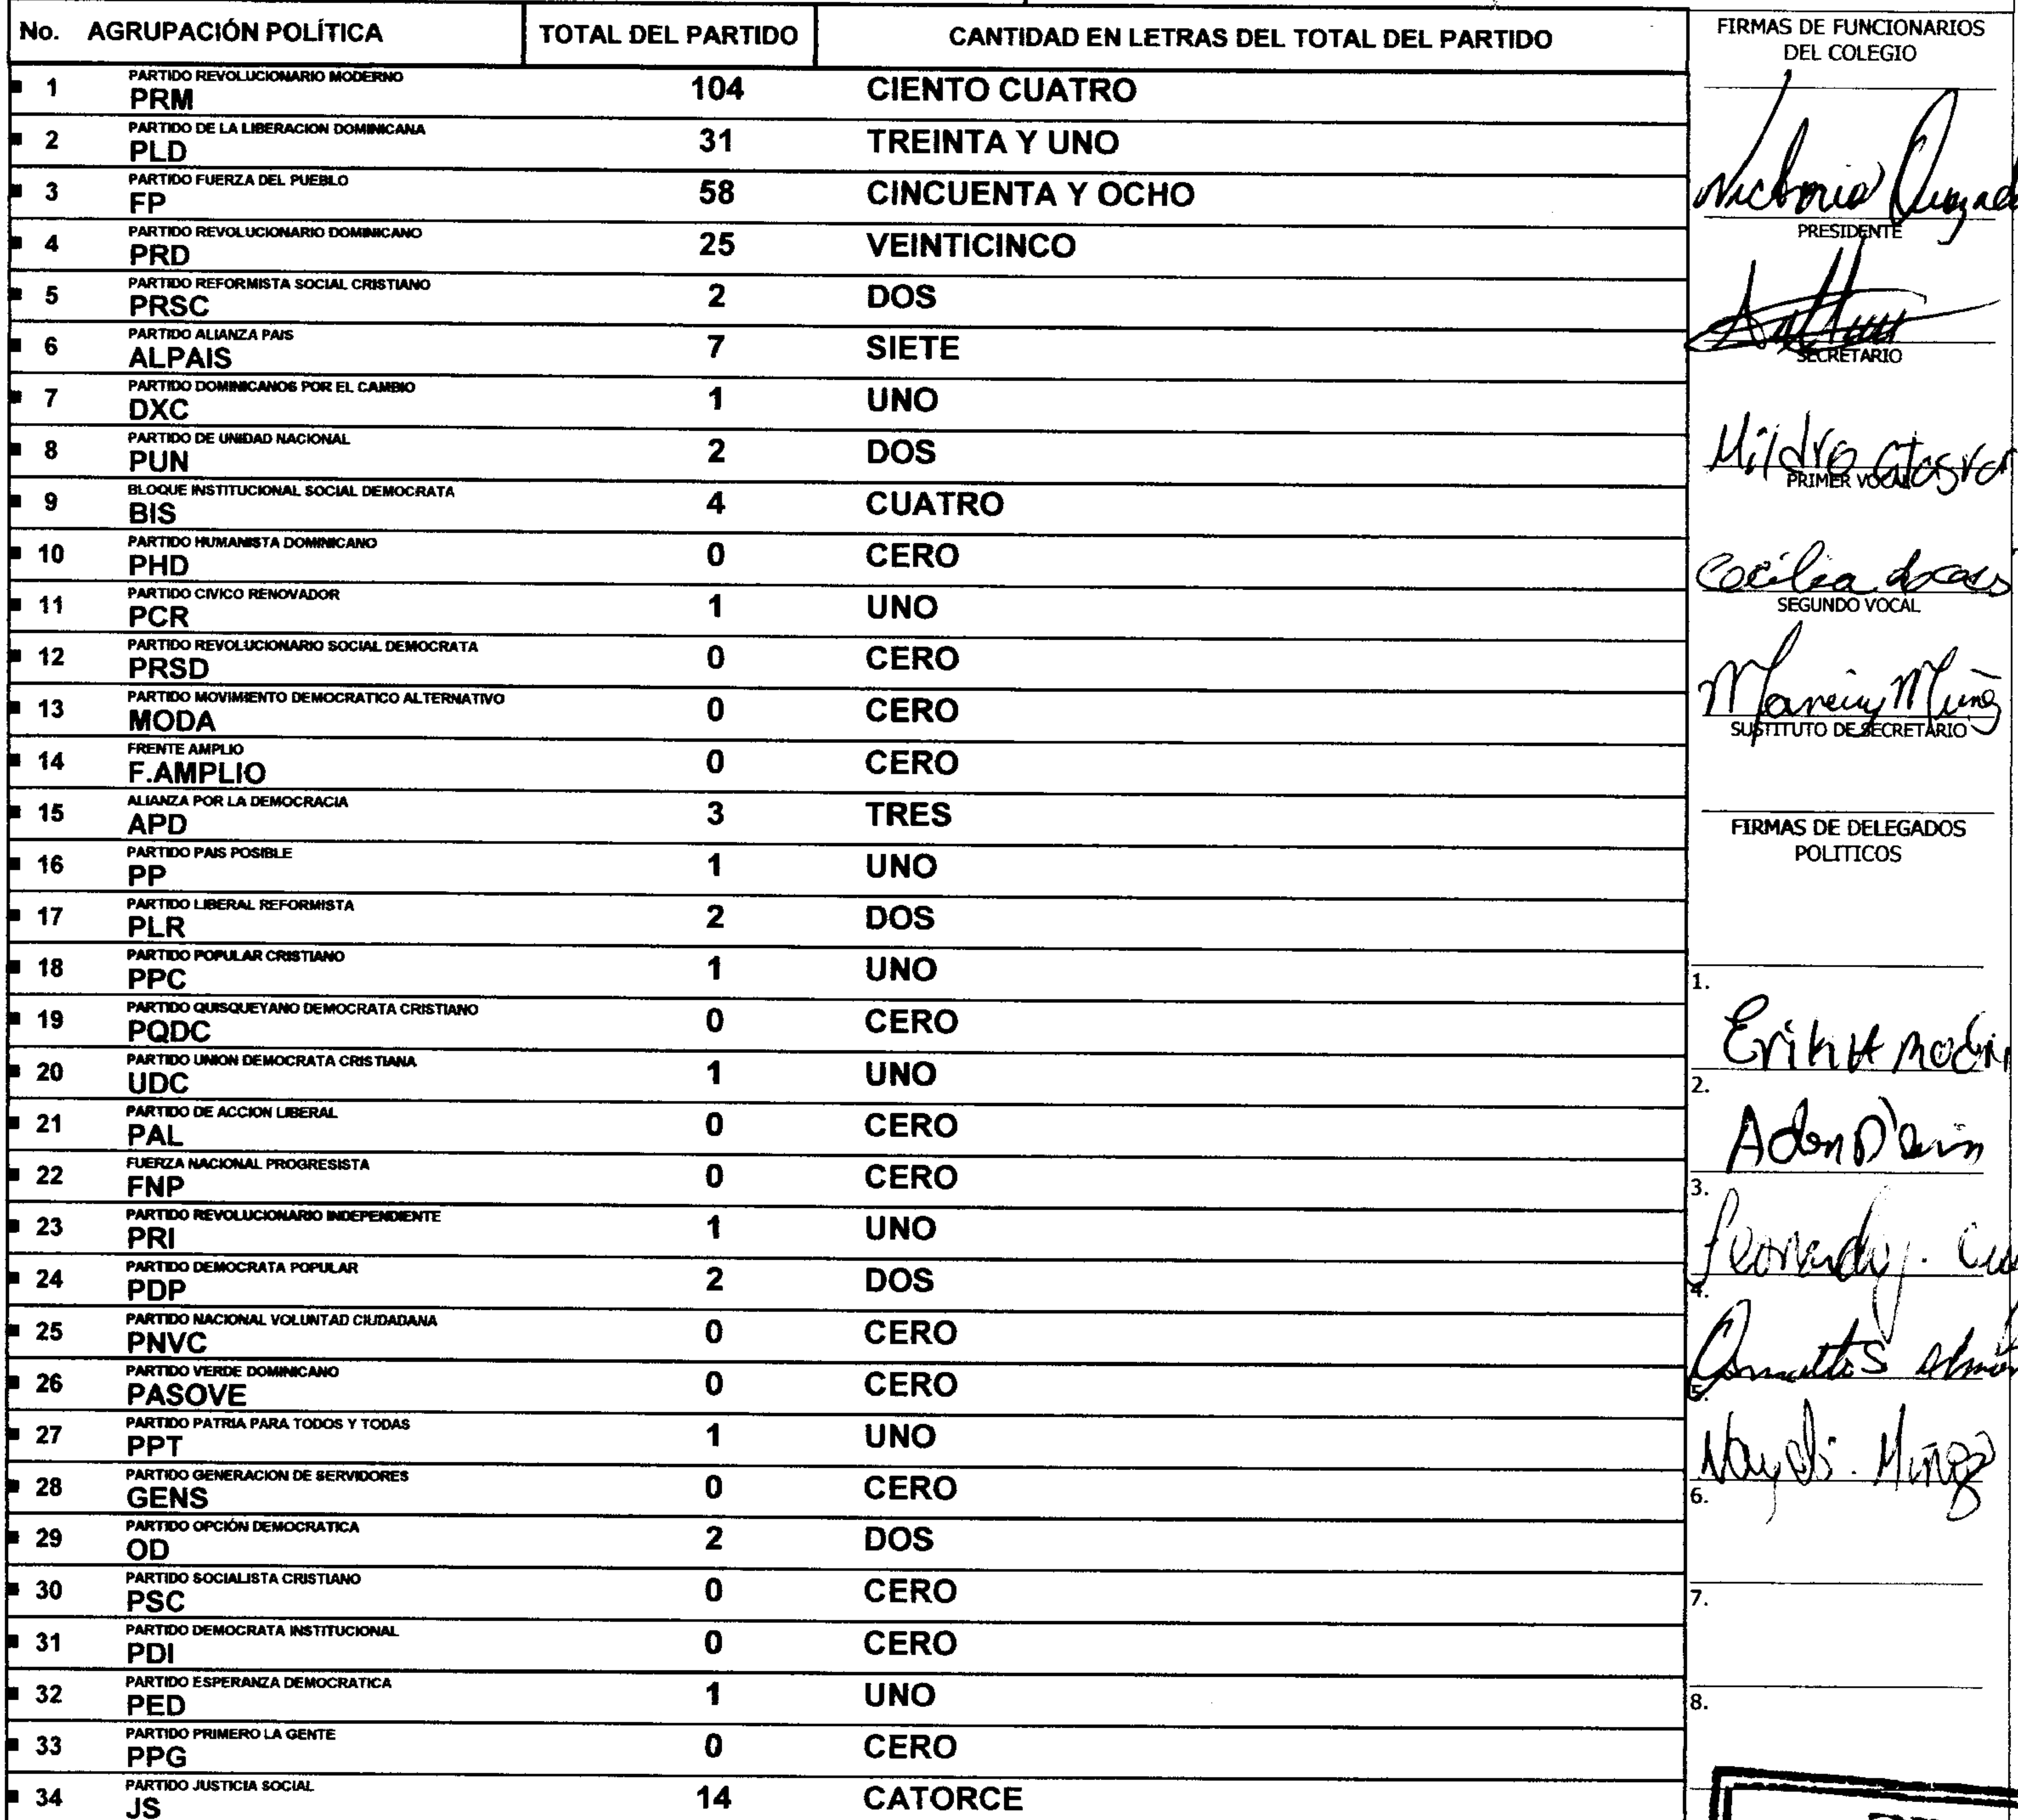 No. AGRUPACIÓN POLÍTICA TOTAL DEL PARTIDO CANTIDAD EN LETRAS DEL TOTAL DEL PARTIDO
PARTIDO REVOLUCIONARIO MODERNO
1 PRM 104 CIENTO CUATRO
PARTIDO DE LA LIBERACION DOMINICANA
2 PLD 31 TREINTA Y UNO
PARTIDO FUERZA DEL PUEBLO
3 FP 58 CINCUENTA Y OCHO
PARTIDO REVOLUCIONARIO DOMINICANO
4 PRD 25 VEINTICINCO
PARTIDO REFORMISTA SOCIAL CRISTIANO
5 PRSC 2 DOS
PARTIDO ALIANZA PAIS
6 ALPAIS 7 SIETE
PARTIDO DOMINICANOS POR EL CAMBIO
7 DXC 1 UNO
PARTIDO DE UNIDAD NACIONAL
8 PUN 2 DOS
BLOQUE INSTITUCIONAL SOCIAL DEMOCRATA
9 BIS 4 CUATRO
PARTIDO HUMANISTA DOMINICANO
10 PHD 0 CERO
PARTIDO CIVICO RENOVADOR
11 PCR 1 UNO
PARTIDO REVOLUCIONARIO SOCIAL DEMOCRATA
12 PRSD 0 CERO
PARTIDO MOVIMIENTO DEMOCRATICO ALTERNATIVO
13 MODA 0 CERO
FRENTE AMPLIO
14 F.AMPLIO 0 CERO
ALIANZA POR LA DEMOCRACIA
15 APD 3 TRES
PARTIDO PAIS POSIBLE
16 PP 1 UNO
PARTIDO LIBERAL REFORMISTA
17 PLR 2 DOS
PARTIDO POPULAR CRISTIANO
18 PPC 1 UNO
PARTIDO QUISQUEYANO DEMOCRATA CRISTIANO
19 PQDC 0 CERO
PARTIDO UNION DEMOCRATA CRISTIANA
20 UDC 1 UNO
PARTIDO DE ACCION LIBERAL
21 PAL 0 CERO
FUERZA NACIONAL PROGRESISTA
22 FNP 0 CERO
PARTIDO REVOLUCIONARIO INDEPENDIENTE
23 PRI 1 UNO
PARTIDO DEMOCRATA POPULAR
24 PDP 2 DOS
PARTIDO NACIONAL VOLUNTAD CIUDADANA
25 PNVC 0 CERO
PARTIDO VERDE DOMINICANO
26 PASOVE 0 CERO
PARTIDO PATRIA PARA TODOS Y TODAS
27 PPT 1 UNO
PARTIDO GENERACION DE SERVIDORES
28 GENS 0 CERO
PARTIDO OPCIÓN DEMOCRATICA
29 OD 2 DOS
PARTIDO SOCIALISTA CRISTIANO
30 PSC 0 CERO
PARTIDO DEMOCRATA INSTITUCIONAL
31 PDI 0 CERO
PARTIDO ESPERANZA DEMOCRATICA
32 PED 1 UNO
PARTIDO PRIMERO LA GENTE
33 PPG 0 CERO
PARTIDO JUSTICIA SOCIAL
34 JS 14 CATORCE
FIRMAS DE FUNCIONARIOS
DEL COLEGIO
PRESIDENTE
SECRETARIO
PRIMER VOCAL
Cecilia
SEGUNDO VOCAL
SUSTITUTO DE SECRETARIO
FIRMAS DE DELEGADOS
POLITICOS
1.
2.
3.
4.
5.
6.
7.
8.